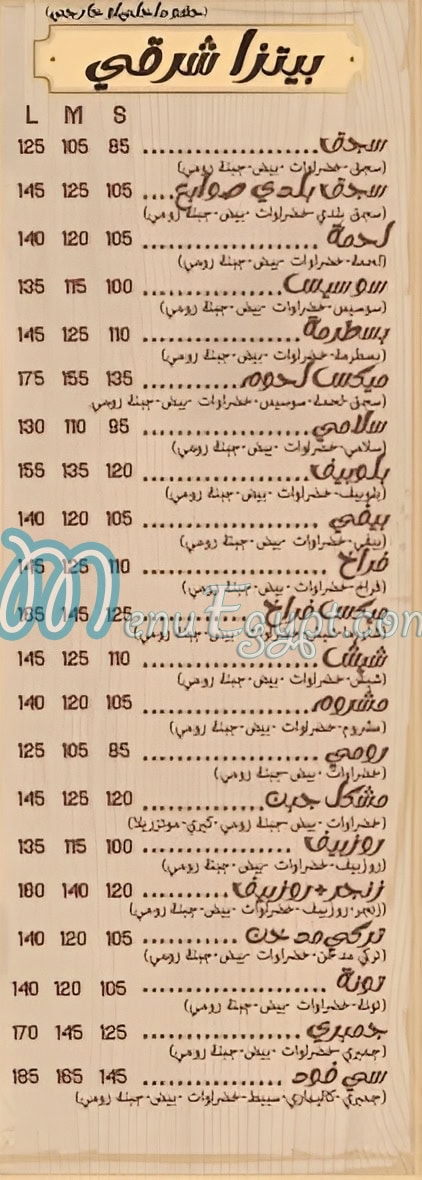 بيتزا شرقي
L M S
سجق .................... 85 105 125
(سجق - خضراوات - بيض - جبنة رومي)
سجق بلدي صوابع .... 105 125 145
(سجق بلدي - خضراوات - بيض - جبنة رومي)
لحمة .................... 105 120 140
(لحمة - خضراوات - بيض - جبنة رومي)
سوسيس ................ 100 115 135
(سوسيس - خضراوات - بيض - جبنة رومي)
بسطرمة ................ 110 125 145
(بسطرمة - خضراوات - بيض - جبنة رومي)
ميكس لحوم ............ 135 155 175
(سجق - لحمة - سوسيس - خضراوات - بيض - جبنة رومي)
سلامي ................ 95 110 130
(سلامي - خضراوات - بيض - جبنة رومي)
بلوبيف ................ 120 135 155
(بلوبيف - خضراوات - بيض - جبنة رومي)
بيفي .................... 105 120 140
(بيفي - خضراوات - بيض - جبنة رومي)
فراخ .................... 110 125 145
(فراخ - خضراوات - بيض - جبنة رومي)
ميكس فراخ ............ 125 145 165
MenuEgypt.com
شيش .................... 110 125 145
(شيش - خضراوات - بيض - جبنة رومي)
مشروم ................ 105 120 140
(مشروم - خضراوات - بيض - جبنة رومي)
رومي .................... 85 105 125
(خضراوات - بيض - جبنة رومي)
مشكل جبن ............ 120 125 145
(خضراوات - بيض - جبنة رومي - كيري - موتزريلا)
روزبيف ................ 100 115 135
(روزبيف - خضراوات - بيض - جبنة رومي)
زنجر + روزبيف .......... 120 140 160
(زنجر - روزبيف - خضراوات - بيض - جبنة رومي)
تركي مدخن ............ 105 120 140
(تركي مدخن - خضراوات - بيض - جبنة رومي)
تونة .................... 105 120 140
(تونة - خضراوات - بيض - جبنة رومي)
جمبري ................ 125 145 170
(جمبري - خضراوات - بيض - جبنة رومي)
سي فود ................ 145 165 185
(جمبري - كاليماري - سبيط - خضراوات - بيض - جبنة رومي)